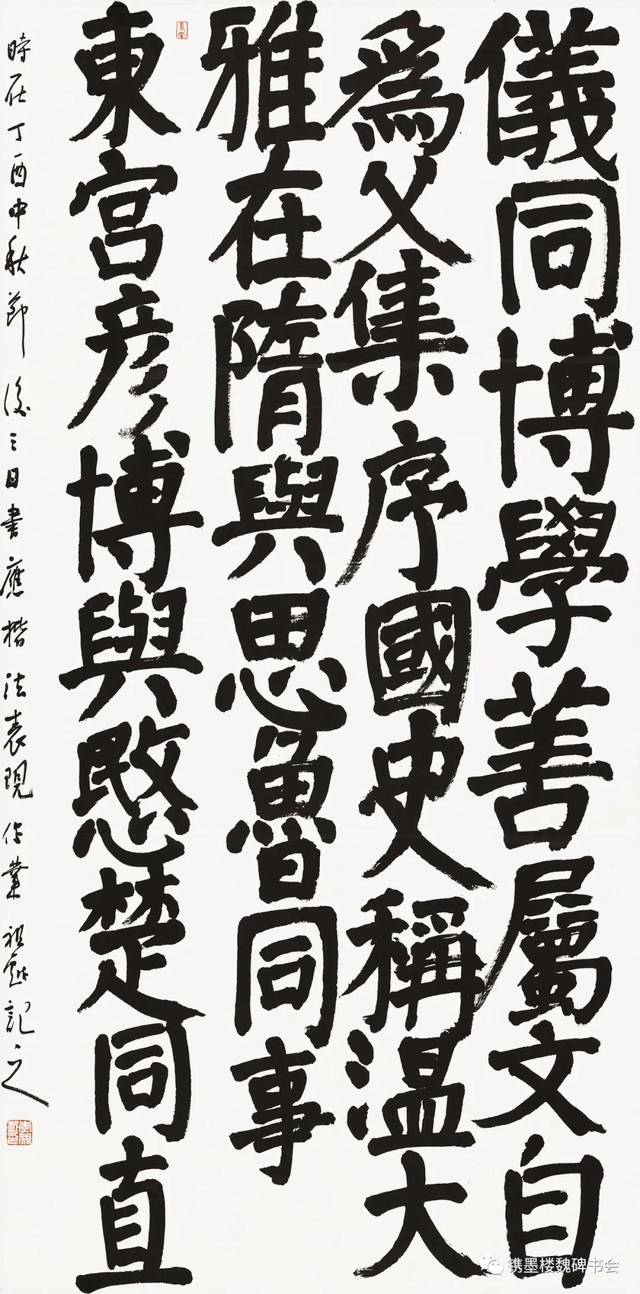 儀同博學善屬文自
為父集序國史稱温大
雅在隋與思魯同事
東宮彦博與愍楚同直
時在丁酉中秋節後三日書應楷法表現作業祖龢記之
鐫墨楼魏碑书会